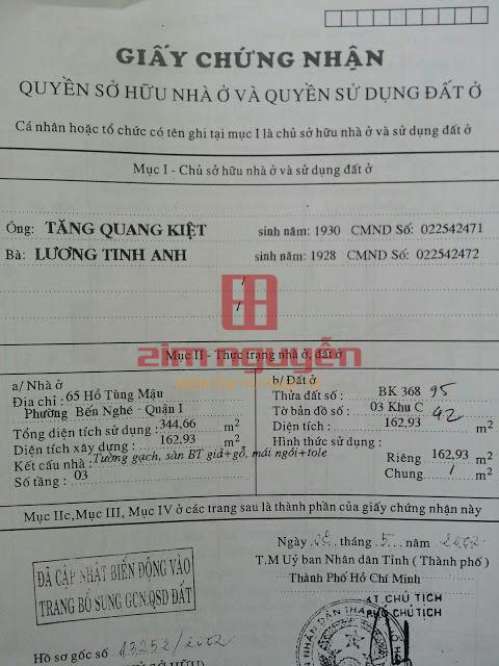 GIẤY CHỨNG NHẬN
QUYỀN SỞ HỮU NHÀ Ở VÀ QUYỀN SỬ DỤNG ĐẤT Ở
Cá nhân hoặc tổ chức có tên ghi tại mục I là chủ sở hữu nhà ở và sử dụng đất ở
Mục I - Chủ sở hữu nhà ở và sử dụng đất ở
Ông: TĂNG QUANG KIỆT sinh năm: 1930 CMND Số: 022542471
Bà: LƯƠNG TINH ANH sinh năm: 1928 CMND Số: 022542472
zim nguyễn
Mục II - Thực trạng nhà ở, đất ở
a/ Nhà ở
Địa chỉ: 65 Hồ Tùng Mậu
Phường Bến Nghé - Quận I
Tổng diện tích sử dụng: 344,66 m2
Diện tích xây dựng: 162,93 m2
Kết cấu nhà: Tường gạch, sàn BT giả+gỗ, mái ngói+tole
Số tầng: 03
b/ Đất ở
Thửa đất số: BK 368 95
Tờ bản đồ số: 03 Khu C 42
Diện tích: 162,93 m2
Hình thức sử dụng:
Riêng 162,93 m2
Chung / m2
Mục IIc, Mục III, Mục IV ở các trang sau là thành phần của giấy chứng nhận này
Ngày tháng 5 năm 2002
T.M Uỷ ban Nhân dân Tỉnh (Thành phố)
Thành Phố Hồ Chí Minh
KT CHỦ TỊCH
PHÓ CHỦ TỊCH
ĐÃ CẬP NHẬT BIẾN ĐỘNG VÀO
TRANG BỔ SUNG GCN.QSD ĐẤT
Hồ sơ gốc số 13252/2002